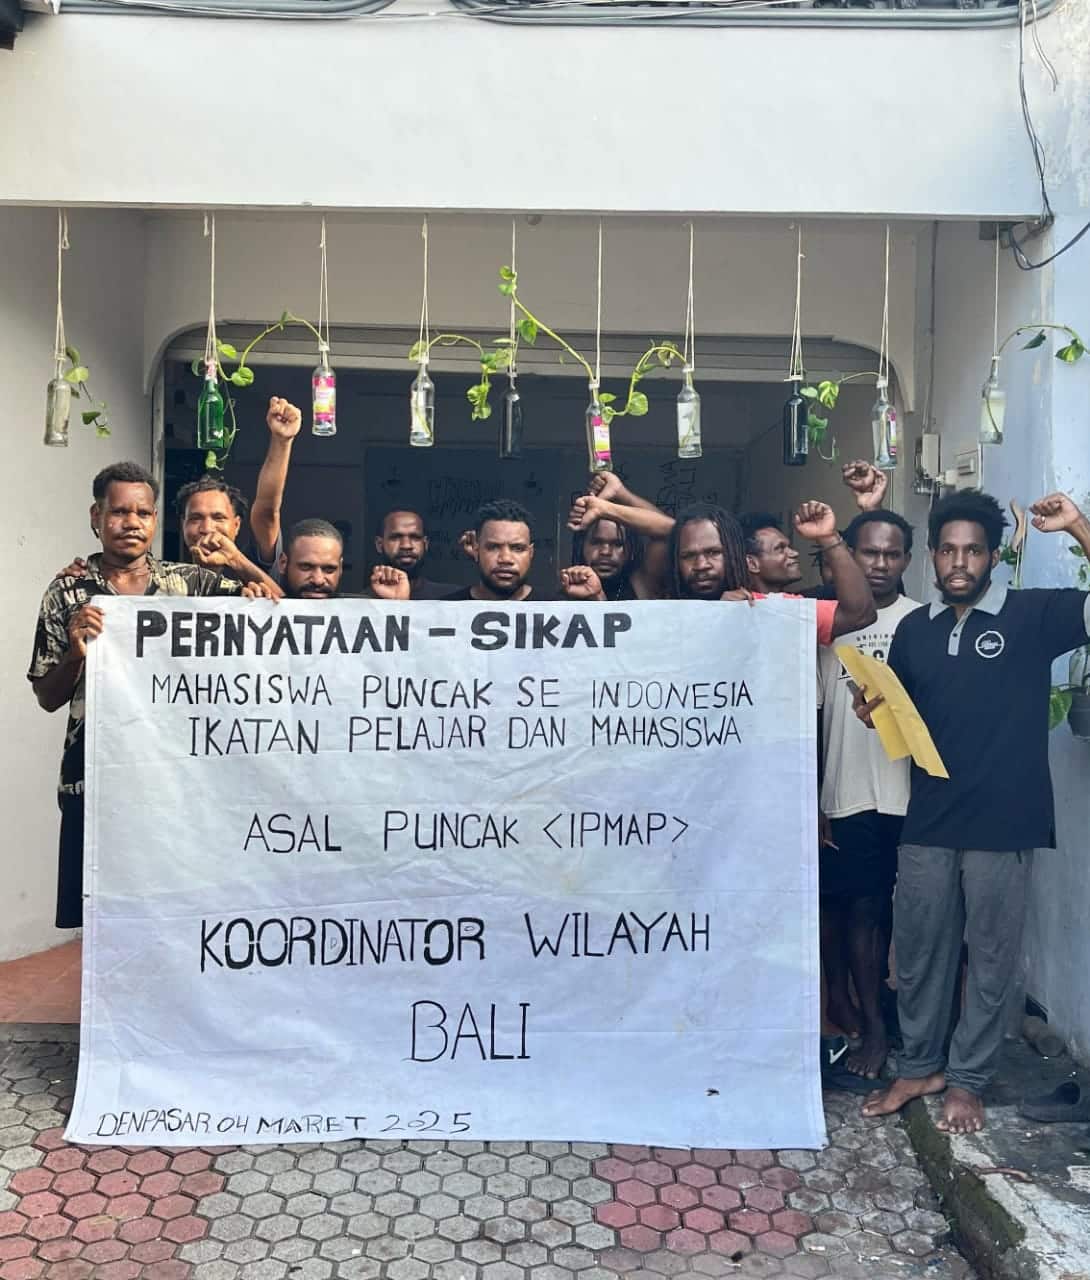 PERNYATAAN - SIKAP
MAHASISWA PUNCAK SE INDONESIA
IKATAN PELAJAR DAN MAHASISWA
ASAL PUNCAK <IPMAP>
KOORDINATOR WILAYAH
BALI
DENPASAR 04 MARET 2025